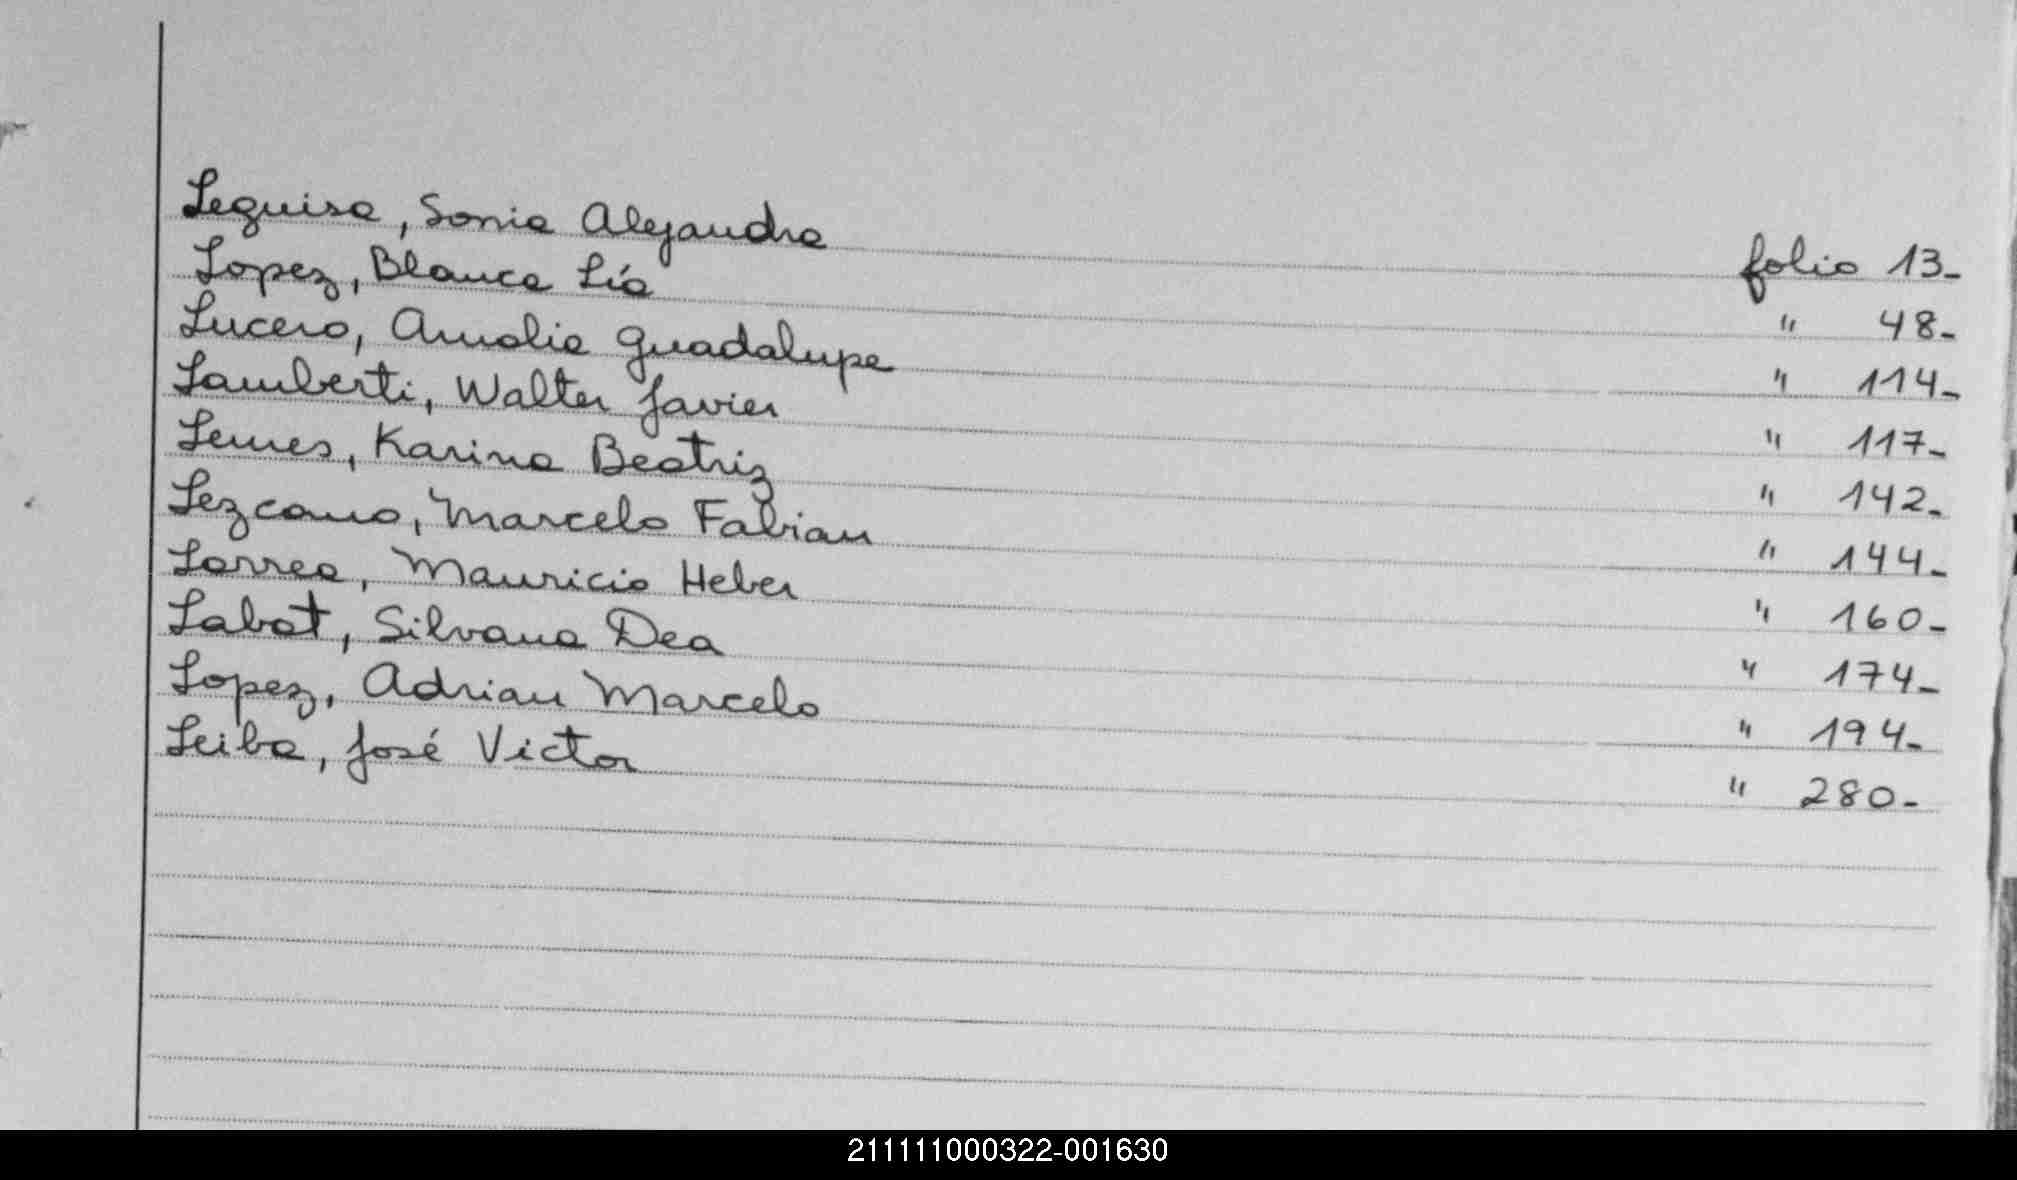 Leguisa, Sonia Alejandra folio 13-
Lopez, Blanca Lía " 48-
Lucero, Amalia Guadalupe " 114-
Lamberti, Walter Javier " 117-
Lemes, Karina Beatriz " 142-
Lezcano, Marcelo Fabian " 144-
Larrea, Mauricio Heber " 160-
Labat, Silvana Dea " 174-
Lopez, Adrian Marcelo " 194-
Leiba, José Victor " 280-
211111000322-001630